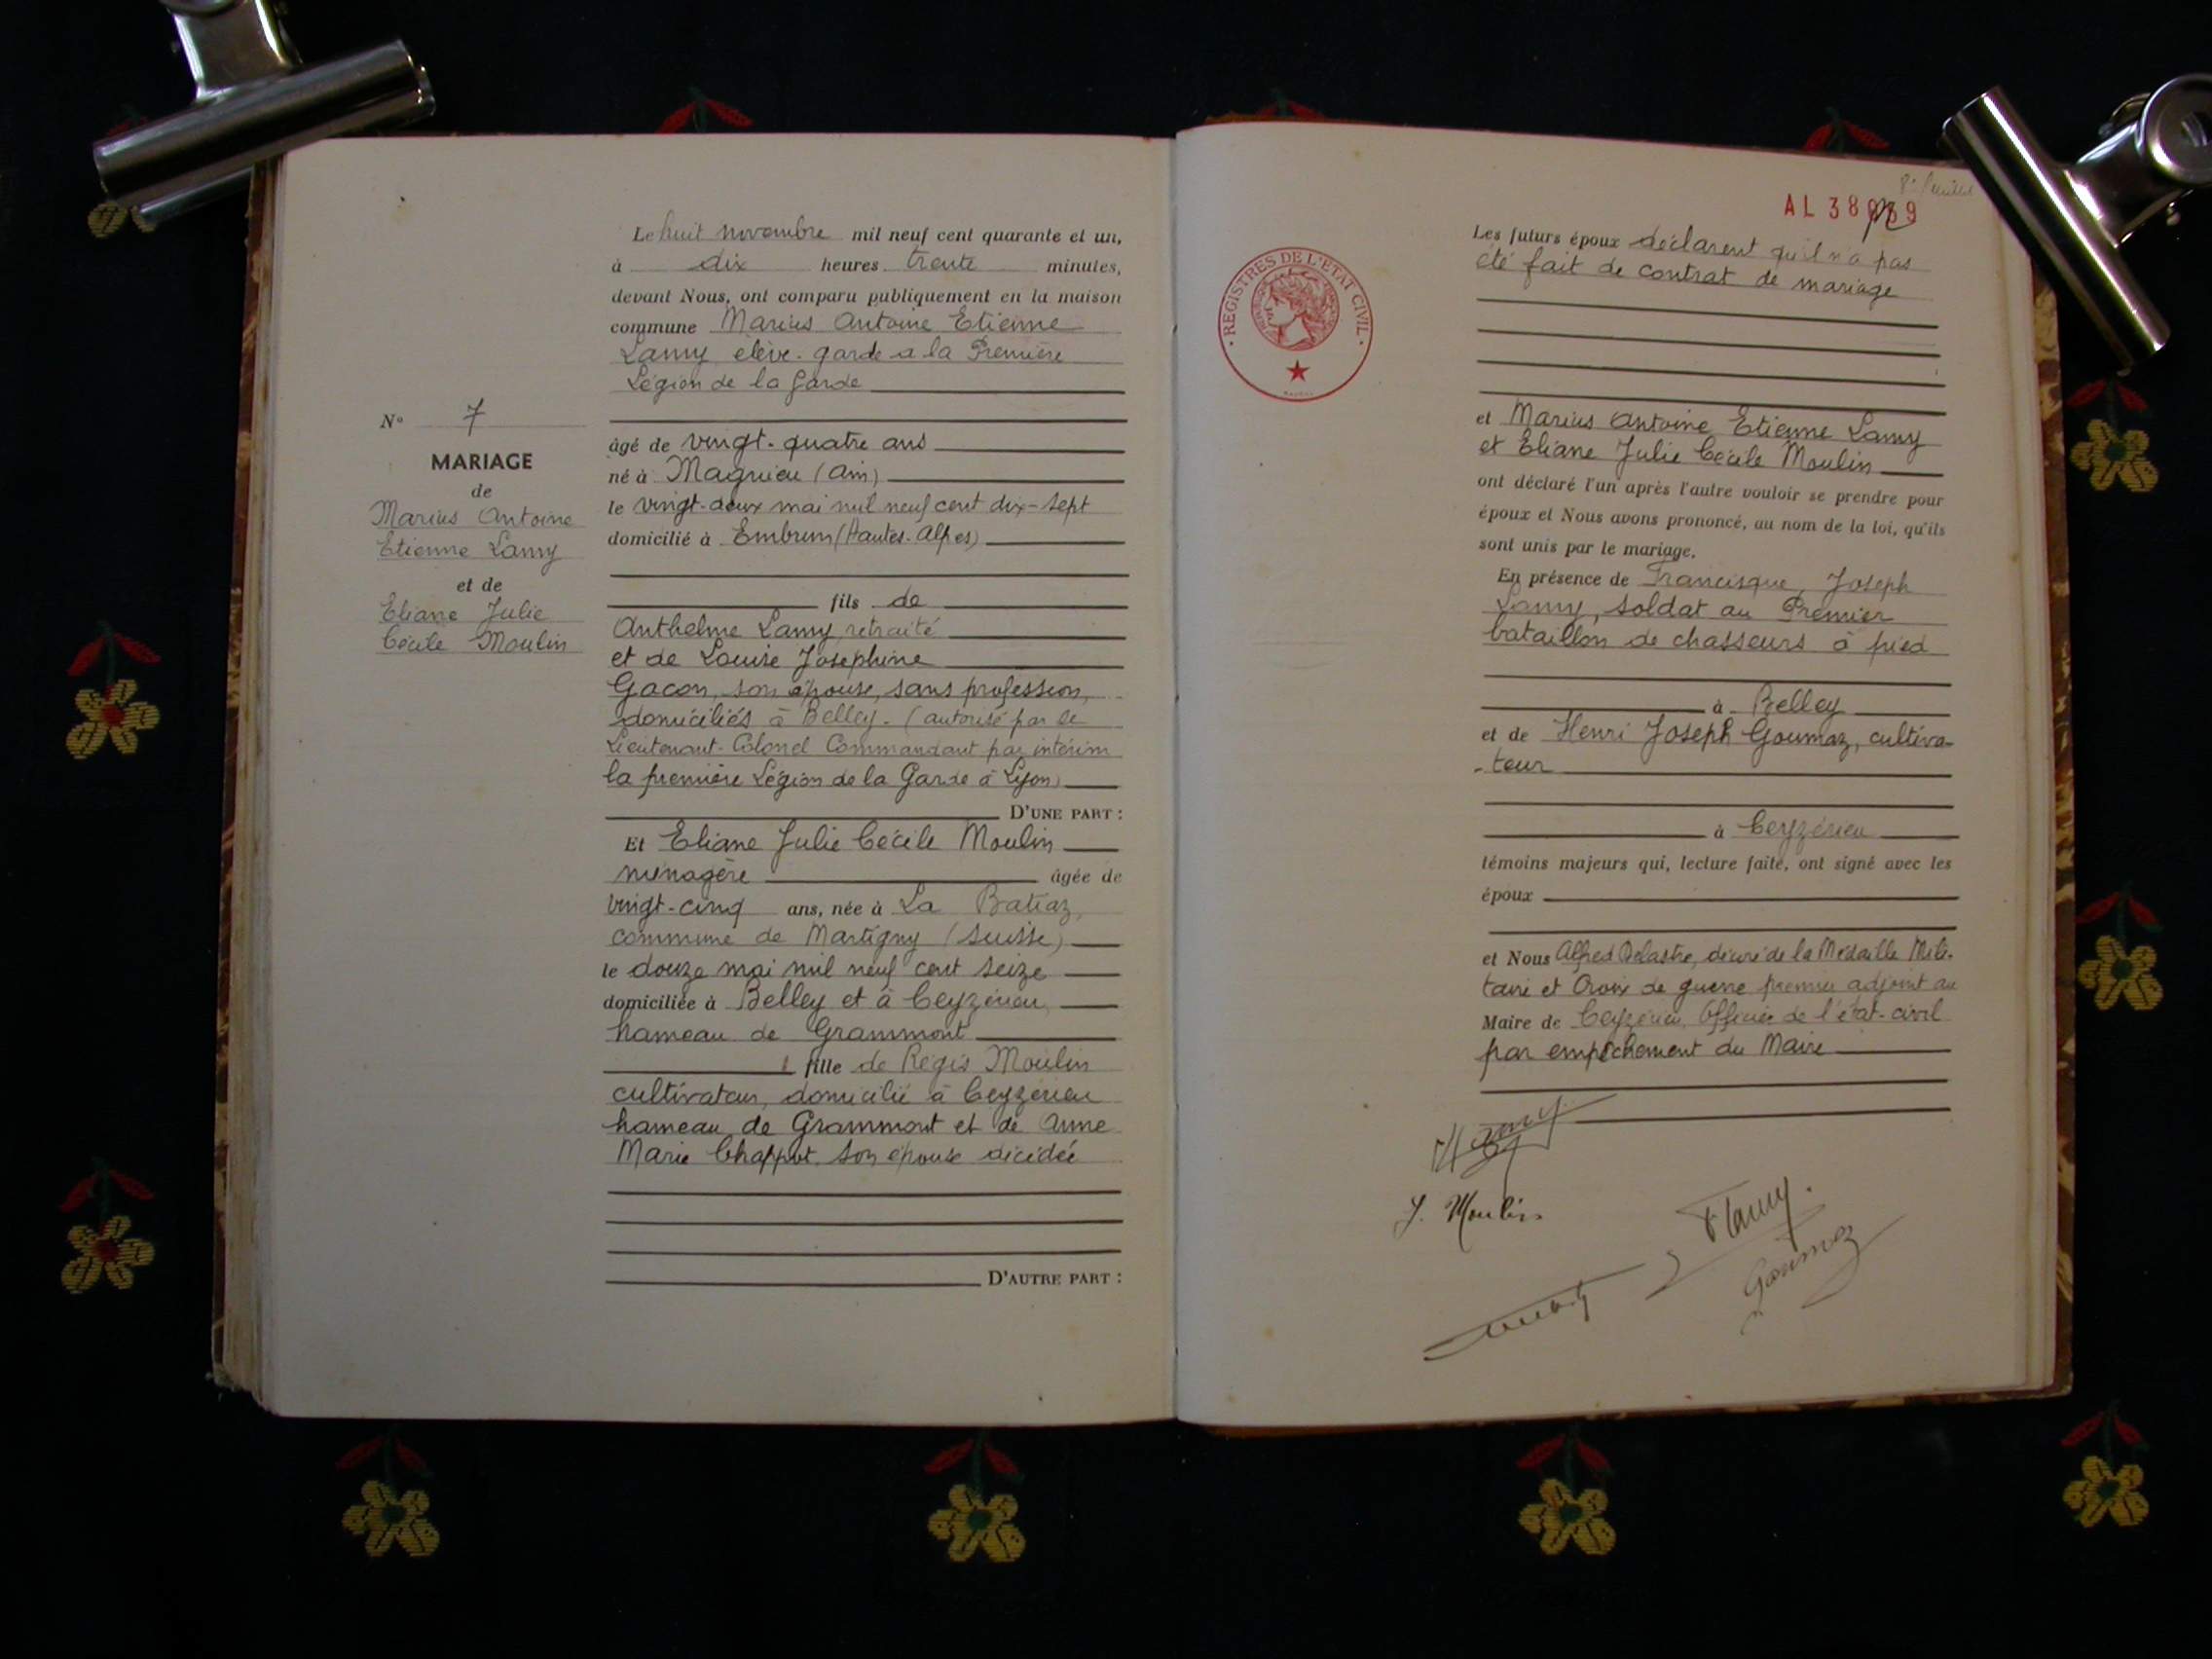 N° 7
MARIAGE
de
Marius Antoine
Etienne Lamy
et de
Eliane Julie
Cécile Moulin
Le huit novembre mil neuf cent quarante et un,
à dix heures trente minutes,
devant Nous, ont comparu publiquement en la maison
commune Marius Antoine Etienne
Lamy élève-garde a la Première
Légion de la Garde
âgé de vingt-quatre ans
né à Magnieu (Ain)
le vingt-deux mai mil neuf cent dix-sept
domicilié à Embrun (Hautes-Alpes)
fils de
Anthelme Lamy, retraité
et de Louise Josephine
Gacon, son épouse, sans profession,
domiciliés à Belley. (autorisé par le
Lieutenant-Colonel Commandant par intérim
la première Légion de la Garde à Lyon)
D'UNE PART :
Et Eliane Julie Cécile Moulin
ménagère âgée de
vingt-cinq ans, née à La Batiaz,
commune de Martigny (Suisse)
le douze mai mil neuf cent seize
domiciliée à Belley et à Ceyzérieu,
hameau de Grammont
fille de Régis Moulin
cultivateur, domicilié à Ceyzérieu
hameau de Grammont et de Anne
Marie Chappot son épouse décédée
D'AUTRE PART :
AL 38
REGISTRES DE L'ETAT CIVIL
Les futurs époux déclarent qu'il n'a pas
été fait de contrat de mariage
et Marius Antoine Etienne Lamy
et Eliane Julie Cécile Moulin
ont déclaré l'un après l'autre vouloir se prendre pour
époux et Nous avons prononcé, au nom de la loi, qu'ils
sont unis par le mariage.
En présence de Francisque, Joseph
Lamy, soldat au Premier
bataillon de chasseurs à pied
à Belley
et de Henri Joseph Goumaz, cultiva-
-teur
à Ceyzérieu
témoins majeurs qui, lecture faite, ont signé avec les
époux
et Nous Alfred Delastre, décoré de la Médaille Mili-
taire et Croix de guerre premier adjoint au
Maire de Ceyzérieu, Officier de l'état-civil
par empêchement du Maire
Lamy
J. Moulin
F Lamy.
Goumaz